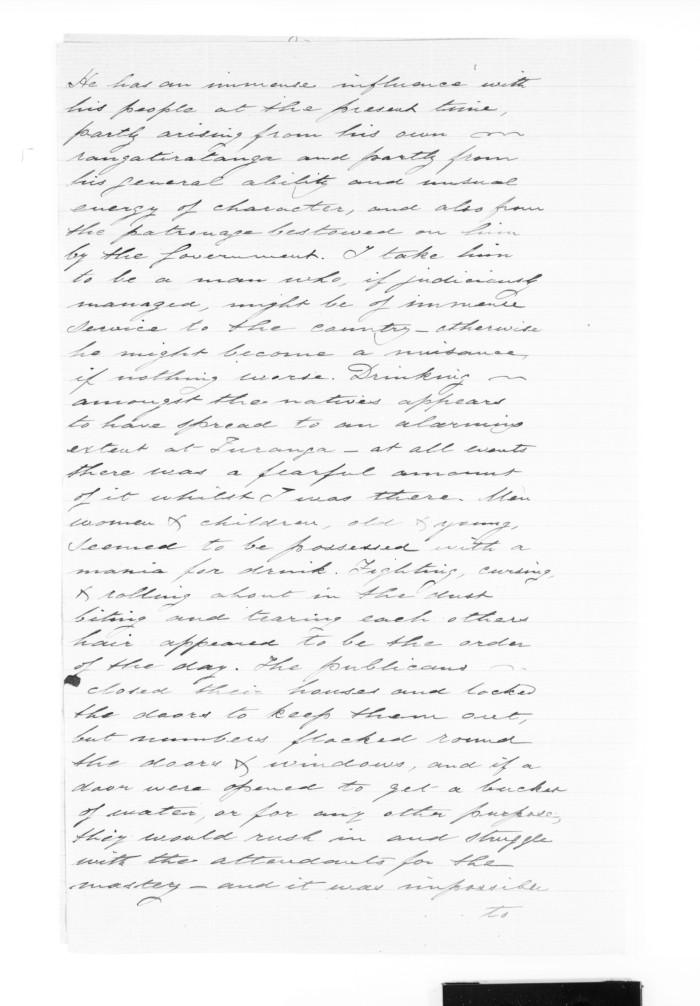 He has an immense influence with
his people at the present time,
partly arising from his own
rangatiratanga and partly from
his general ability and unusual
energy of character, and also from
the patronage bestowed on him
by the Government. I take him
to be a man who, if judiciously
managed, might be of immense
service to the country – otherwise
he might become a nuisance,
if nothing worse. Drinking
amongst the natives appears
to have spread to an alarming
extent at Turanga – at all events
there was a fearful amount
of it whilst I was there. Men
women & children, old & young,
seemed to be possessed with a
mania for drink. Fighting, cursing,
& rolling about in the dust
biting and tearing each others
hair appeared to be the order
of the day. The publicans
closed their houses and locked
the doors to keep them out,
but numbers flocked round
the doors & windows, and if a
door were opened to get a bucket
of water, or for any other purpose,
they would rush in and struggle
with the attendants for the
mastery – and it was impossible
to